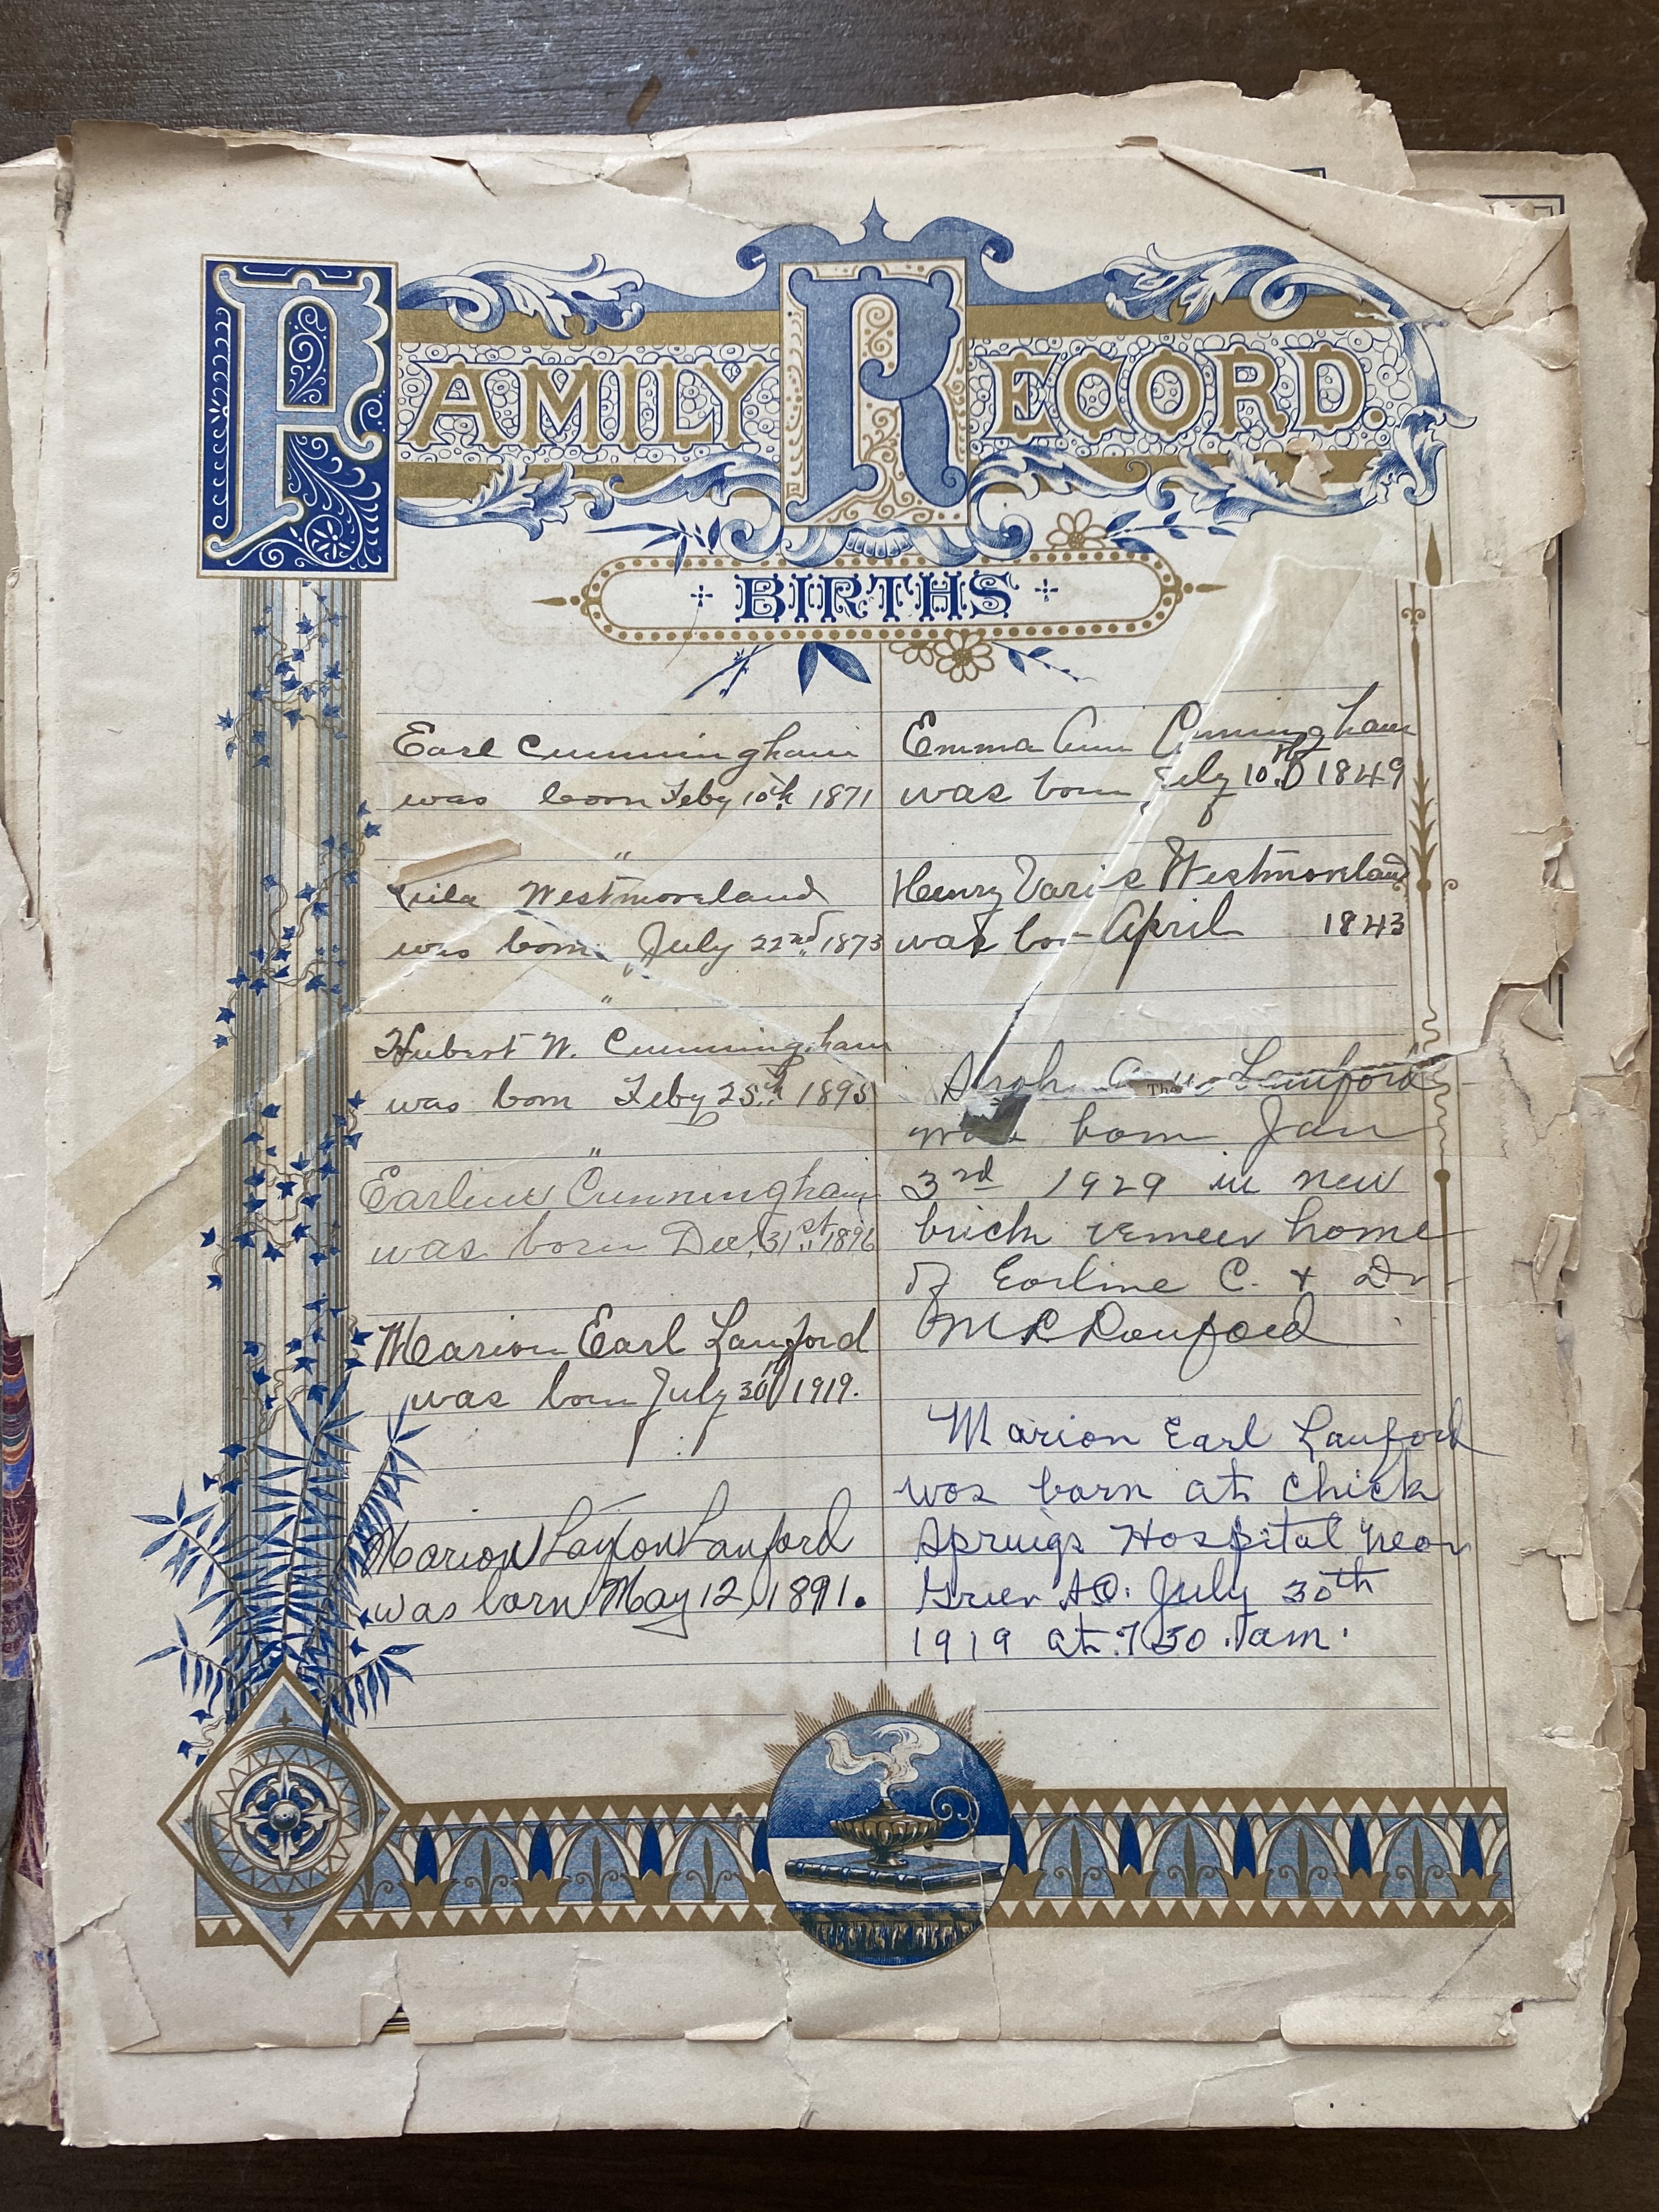 FAMILY RECORD.
BIRTHS
Earl Cunningham
was born Feby 10th 1871
"
Lila Westmoreland
was born July 22nd 1873
"
Hubert W. Cunningham
was born Feby 25th 1895
"
Earline Cunningham
was born Dec. 31st 1896
Marion Earl Lanford
was born July 30th 1919.
Marion Layton Lanford
was born May 12, 1891.
Emma Ann Cunningham
was born July 10th 1849
Henry Varis Westmoreland
was born April 1843
Sarah Lanford
The
was born Jan
3rd 1929 in new
brick veneer home
of Earline C. & Dr
M L Lanford
Marion Earl Lanford
was born at Chick
Springs Hospital near
Greer SC. July 30th
1919 at 7:30 am.